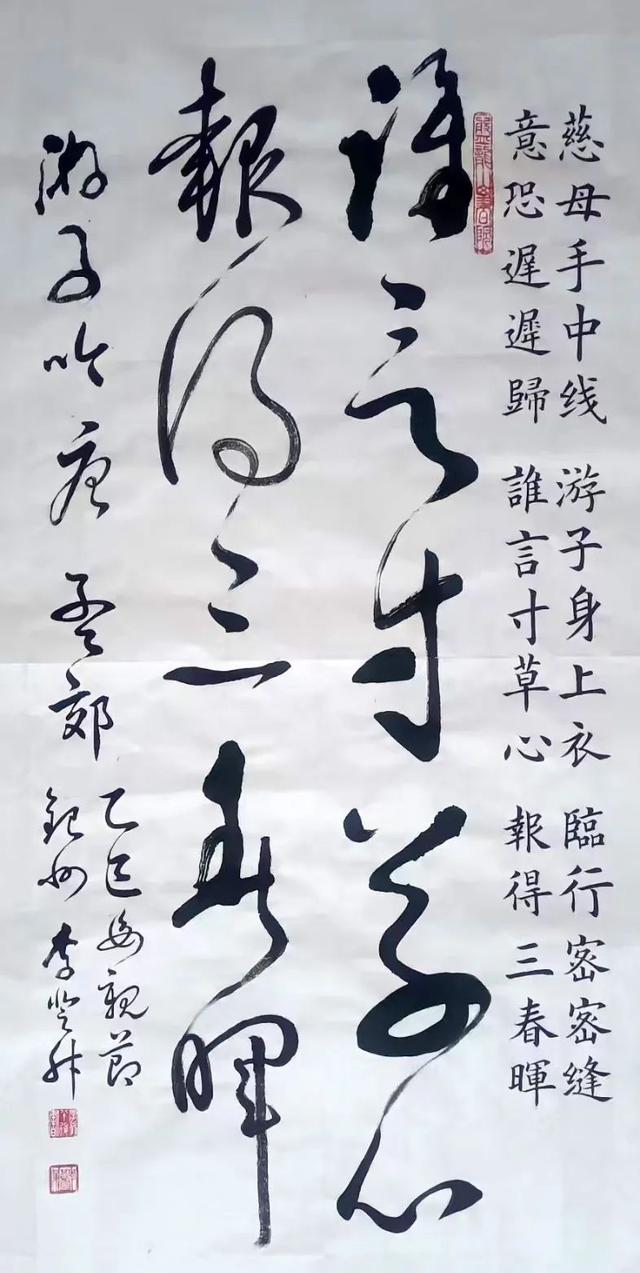 慈母手中线 游子身上衣 臨行密密缝
意恐遲遲歸 誰言寸草心 報得三春暉
誰言寸草心
報得三春暉
游子吟 唐 孟郊
乙巳母親節